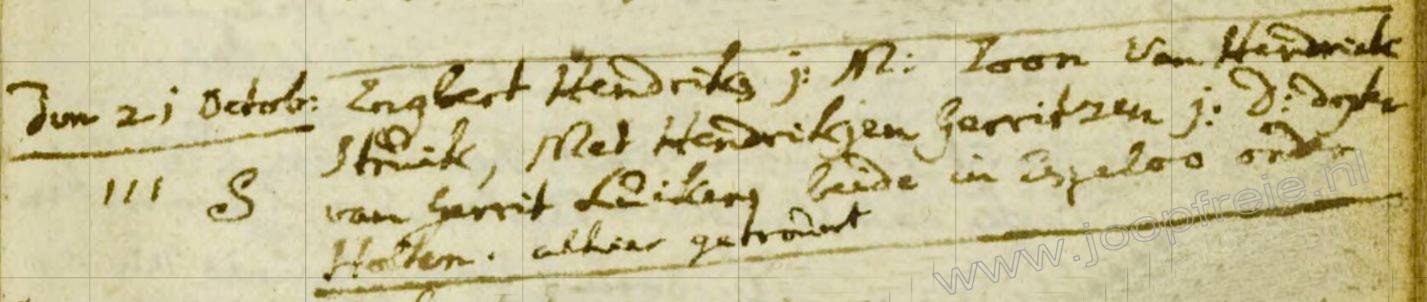 Den 21 Octobr: Engbert Hendriks j: M: Zoon van Hendrick
Struik, Met Hendrikjen Gerritzen j: D: dogter
III S van Gerrit Luikens beide in Espeloo onder
Holten. alhier getrouwt
www.joopfreie.nl